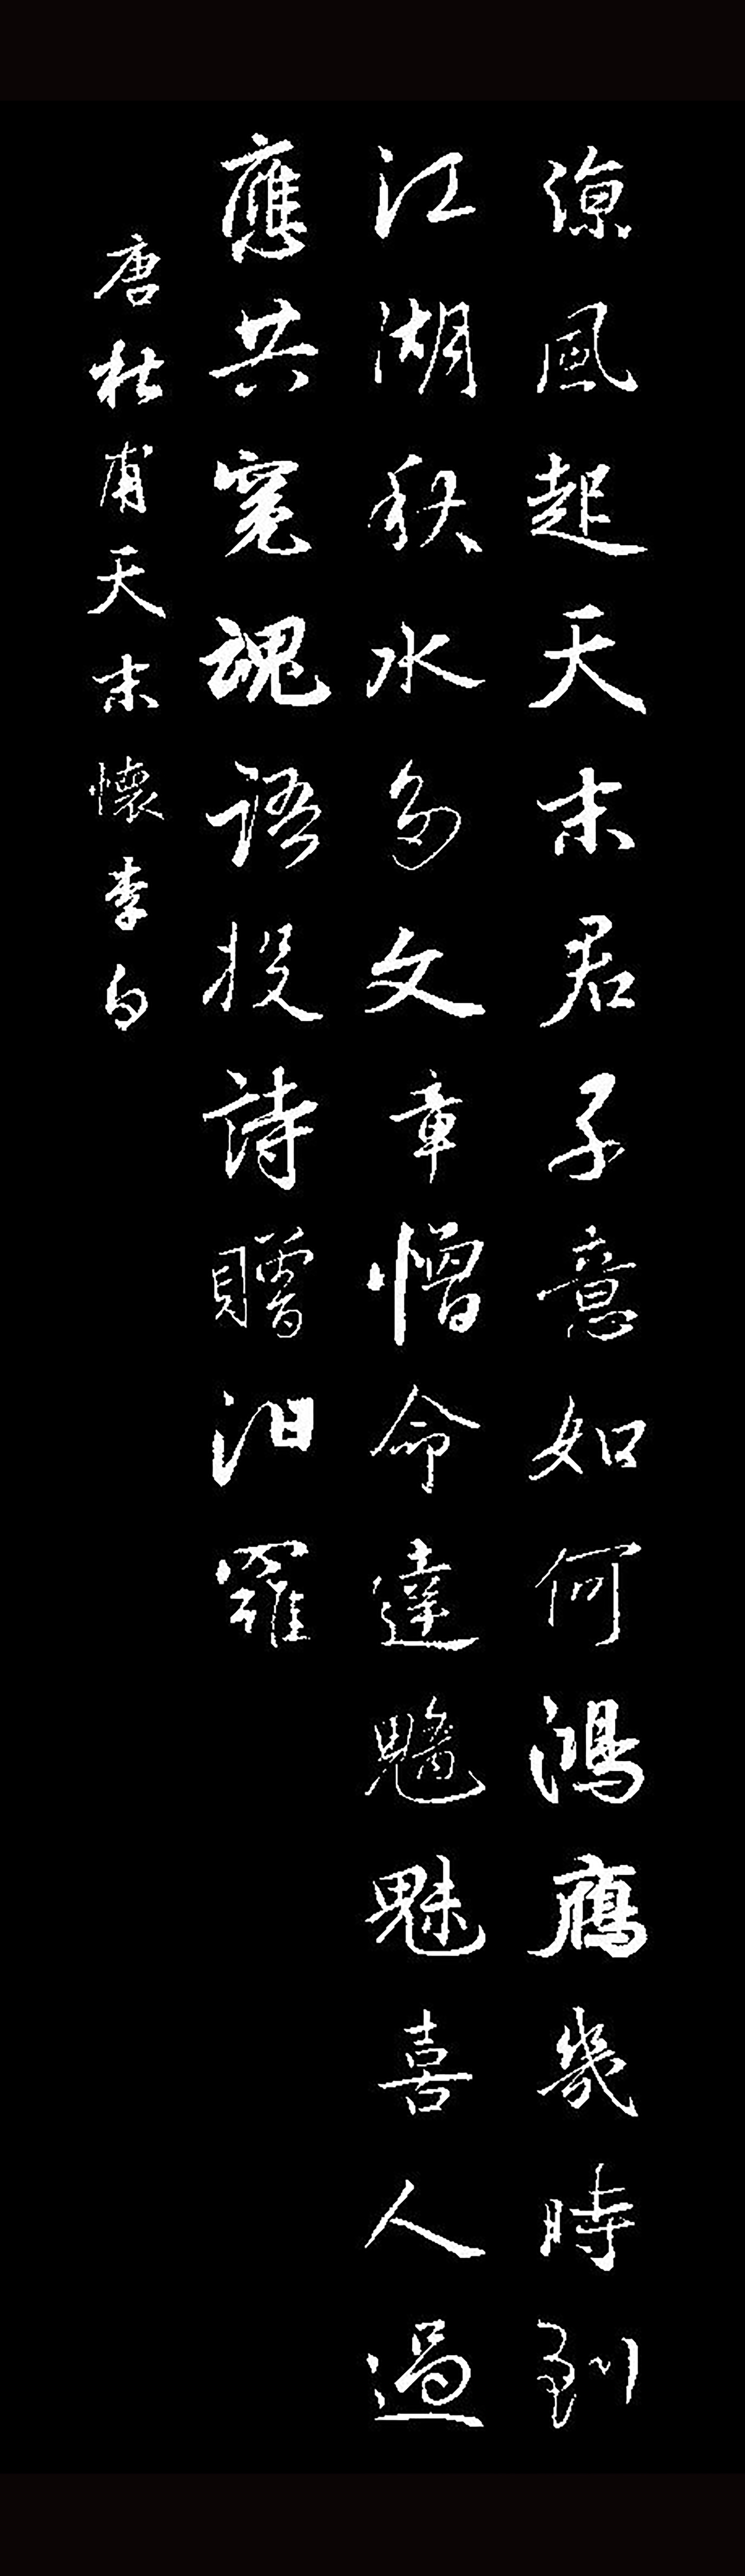 涼風起天末君子意如何鴻鴈幾時到
江湖秋水多文章憎命達魑魅喜人過
應共冤魂語投詩贈汨羅
唐杜甫天末懷李白